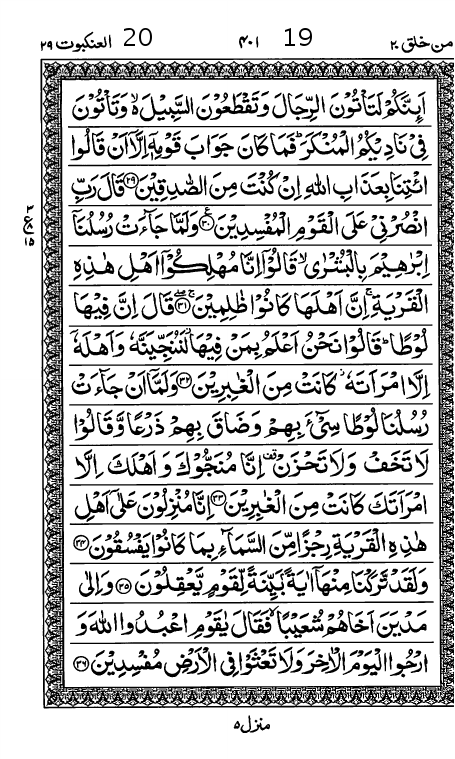 من خلق ۲۰ 19 ۴۰۱ 20 العنكبوت ۲۹
اَىِٕنَّكُمْ لَتَاْتُوْنَ الرِّجَالَ وَتَقْطَعُوْنَ السَّبِيْلَ ۙ۬ وَتَاْتُوْنَ
فِىْ نَادِيْكُمُ الْمُنْكَرَ ؕ فَمَا كَانَ جَوَابَ قَوْمِهٖۤ اِلَّاۤ اَنْ قَالُوا
ائْتِنَا بِعَذَابِ اللّٰهِ اِنْ كُنْتَ مِنَ الصّٰدِقِيْنَ ﴿۲۹﴾ قَالَ رَبِّ
انْصُرْنِىْ عَلَى الْقَوْمِ الْمُفْسِدِيْنَ ﴿۳۰﴾ ع وَلَمَّا جَآءَتْ رُسُلُنَاۤ
اِبْرٰهِيْمَ بِالْبُشْرٰى ۙ قَالُوْۤا اِنَّا مُهْلِكُوْۤا اَهْلِ هٰذِهِ
الْقَرْيَةِ ۚ اِنَّ اَهْلَهَا كَانُوْا ظٰلِمِيْنَ ﴿۳۱﴾ قَالَ اِنَّ فِيْهَا
لُوْطًا ؕ قَالُوْا نَحْنُ اَعْلَمُ بِمَنْ فِيْهَا ٘ لَنُنَجِّيَنَّهٗ وَاَهْلَهٗۤ
اِلَّا امْرَاَتَهٗ ۫ كَانَتْ مِنَ الْغٰبِرِيْنَ ﴿۳۲﴾ وَلَمَّاۤ اَنْ جَآءَتْ
رُسُلُنَا لُوْطًا سِىْٓءَ بِهِمْ وَضَاقَ بِهِمْ ذَرْعًا وَّقَالُوْا
لَا تَخَفْ وَلَا تَحْزَنْ ۫ اِنَّا مُنَجُّوْكَ وَاَهْلَكَ اِلَّا
امْرَاَتَكَ كَانَتْ مِنَ الْغٰبِرِيْنَ ﴿۳۳﴾ اِنَّا مُنْزِلُوْنَ عَلٰۤى اَهْلِ
هٰذِهِ الْقَرْيَةِ رِجْزًا مِّنَ السَّمَآءِ بِمَا كَانُوْا يَفْسُقُوْنَ ﴿۳۴﴾
وَلَقَدْ تَّرَكْنَا مِنْهَاۤ اٰيَةًۢ بَيِّنَةً لِّقَوْمٍ يَّعْقِلُوْنَ ﴿۳۵﴾ وَاِلٰى
مَدْيَنَ اَخَاهُمْ شُعَيْبًا ۙ فَقَالَ يٰقَوْمِ اعْبُدُوا اللّٰهَ وَ
ارْجُوا الْيَوْمَ الْاٰخِرَ وَلَا تَعْثَوْا فِى الْاَرْضِ مُفْسِدِيْنَ ﴿۳۶﴾
۳
ع
۱۵
منزل ۵